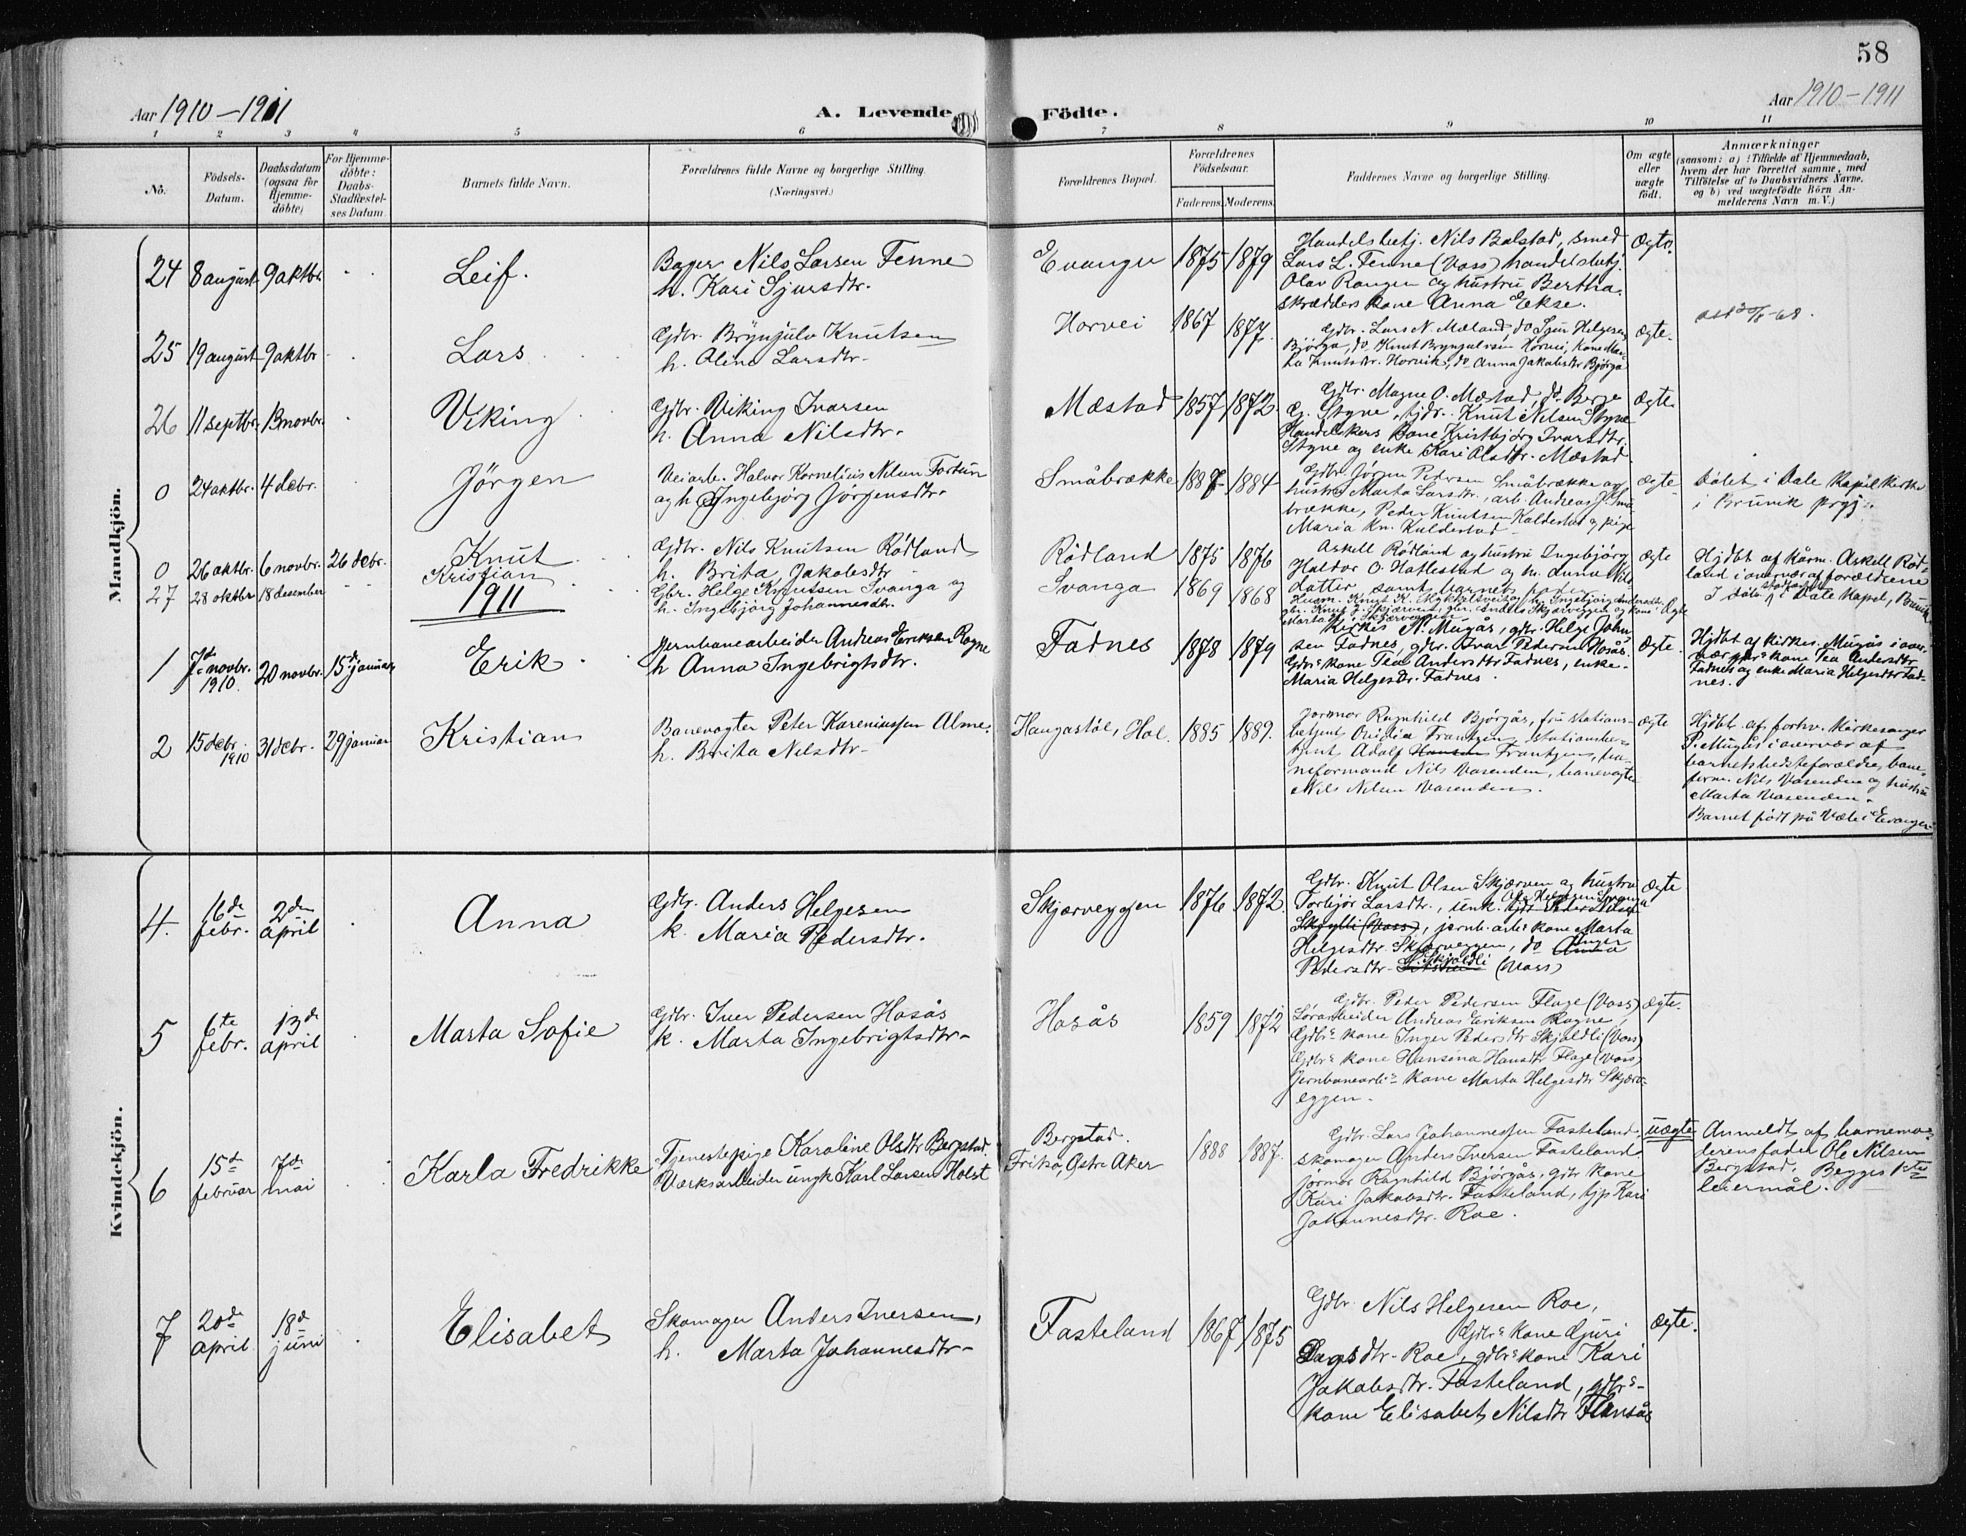 58
Aar 1910-1911
A. Levende
Födte.
Aar 1910-1911
1 2 3 4 5 6 7 8 9 10 11
No.
Födsels-Datum.
Daabsdatum (ogsaa for Hjemme-döbte)
For Hjemme-döbte: Daabs-Stadfæstel-ses Datum.
Barnets fulde Navn.
Forældrenes fulde Navne og borgerlige Stilling. (Næringsvei.)
Forældrenes Bopæl.
Forældrenes Födselsaar.
Faderens. Moderens.
Faddernes Navne og borgerlige Stilling.
Om ægte eller uægte födt.
Anmærkninger
(saasom: a) i Tilfælde af Hjemmedaab, hvem der har forrettet samme, med Tilföielse af to Daabsvidners Navne. og b) ved uægtefödte Börn An-melderens Navn m. V.)
Mandkjön.
24 8 august 9 aktbr. Leif.
Bager Nils Larsen Tenne
h. Kari Sjursdtr.
Evanger 1875 1879
Handelsbetj. Nils Balstad, smed
Lars L. Tenne (Voss) handelsbetj.
Olav Rongen og hustru Bertha.
skrædders kone Anna Ekse.
Ægte.
25 19 august 9 aktbr Lars
Gdbr. Brynjulv Knutsen
h. Oline Larsdtr.
Horvei 1867 1877
Gdbr. Lars N. Mæland, do Sjur Helgesen
Bjørga, do. Knut Brynjulvsen Horvei, kone
Knutsdtr. Horvik, do Anna Jakobsdtr Bjørga
ægte.
26 11 septbr. 13 novbr. Viking
Gdbr. Viking Ivarsen
h. Anna Nilsdtr.
Mæstad 1857 1872
Gdbr. Magne O. Mæstad, do. Berge
Styve, tjdr. Knut Nilsen Styve
Kristbjørg Ivarsdtr.
Styve og enke Kari Olsdtr. Mæstad.
ægte
0 24 aktbr. 4 debr. Jörgen
Veiarb. Halvor Kornelius Nilsen Fortun
og h. Ingebjørg Jörgensdtr.
Småbrække 1887 1884
Gdbr. Jörgen Pedersen Småbrække og
hustru Marta Larsdtr., arb. Andreas J. Små
brække, Peder Knutsen Kaldestad og pige
Maria Kn. Kaldestad
ægte
Døbt i Dale Kapel kirke
i Bruvik prgj.
0 26 aktbr. 6 novbr. 26 debr. Knut
Gdbr. Nils Knutsen Rödland
h. Brita Jakobsdtr
Rödland 1875 1876
Askell Rödland og hustru Ingebjörg
Haldor O. Hatlestad og h. Anna
ægte
Hjdbt af Kårm. Askell Röd-
land i overvær af forældrene
27 28 oktbr 18 desember Kristian
Gbr. Helge Knutsen Svanga og
h. Ingebjörg Johannesdtr.
Svanga 1869 1868
Ægte
i Dale Kapel, Bruvik
1911
1 7de novbr. 1910. 20 novbr. 15d januar Erik
Jernbanearbeider Andreas Eriksen Rogne
h Anna Ingebrigtsdtr.
Fadnes 1878 1879
Kirkes. N. Mugås, gdbr. Helge Johan-
sen Fadnes, gdbr. Ivar Pedersen Hosås.
Gdbrs kone Tea Andersdtr Fadnes, enke
Maria Helgesdtr. Fadnes.
Ægte.
Hjdbt af kirkes. Mugås i over-
vær kone Tea Andersdtr
Fadnes og enke Maria Helgesdtr Fad-
nes.
2 15 debr. 1910 31 debr. 29 januar Kristian
Banevogter Peter Kareniussen Alme.
h. Brita Nilsdtr
Haugastøl, Hol. 1885 1889.
Jormor Ragnhild Björgås, fru stations-
betjent Frantzen, stationsbe-
tjent Adolf Hansen Frantzen, ba-
neformand Nils Vasenden, banevogter
Nils Nilsen Vasenden.
ægte
Hjdbt af forhv. Kirkesanger
P. Mugås i overvær af
barnets bedsteforældre, bane-
form. Nils Vasenden og hustru
Marta Vasenden.
Barnet født på Væle i Evanger.
Kvindekjön.
4. 16de febr. 2den april Anna
Gdbr. Anders Helgesen
k. Maria Pedersdtr.
Skjærveggen 1876 1872.
Gdbr. Knut Olsen Skjærven og hustru
Torbjör Larsdtr.,
Skjelli (Voss), jernb. arb.s kone Marta
Helgesdtr. Skjærveggen, do Anna Inger
Pedersdtr. Skjældli (Voss)
Ægte
5 6te febr. 13d april Marta Sofie
Gdbr. Iver Pedersen Hosås
k. Marta Ingebrigtsdtr
Hosås 1859 1872
Gdbr. Peder Pedersen Flage (Voss)
Andreas Eriksen Rogne,
Gdbrs kone Inger Pedersdtr Skjældli (Voss)
Gdbrs kone Hansina Hansdtr Flage (Voss)
Jernbanearb.s kone Marta Helgesdtr Skjærv-
eggen.
ægte.
6 15d februar 7d mai Karla Fredrikke
Tjenestepige Karoline Olsdtr Bergstad.
Værksarbeider ungk Karl Larsen Holst
Bergstad.
Östre Aker
1888 1887.
Gdbr. Lars Johannessen Fasteland.
skomager Anders Iversen Fasteland.
jormor Ragnhild Björgås, gdbr kone
Kari Jakobsdtr. Fasteland, tjp Kari
Johannesdtr. Roe.
uægte
Anmeldt af barnemo-
derens fader Ole Nilsen
Bergstad. Begges 1ste
leiermål.
7 20de april 18d juni Elisabet
Skomager Anders Iversen,
h. Marta Johannesdtr
Fasteland 1867 1875
Gdbr. Nils Helgesen Roe,
Gdbrs kone Guri
Dagsdtr. Roe, gdbrs kone Kari
Jakobsdtr. Fasteland, gdbrs-
kone Elisabet Nilsdtr
ægte.